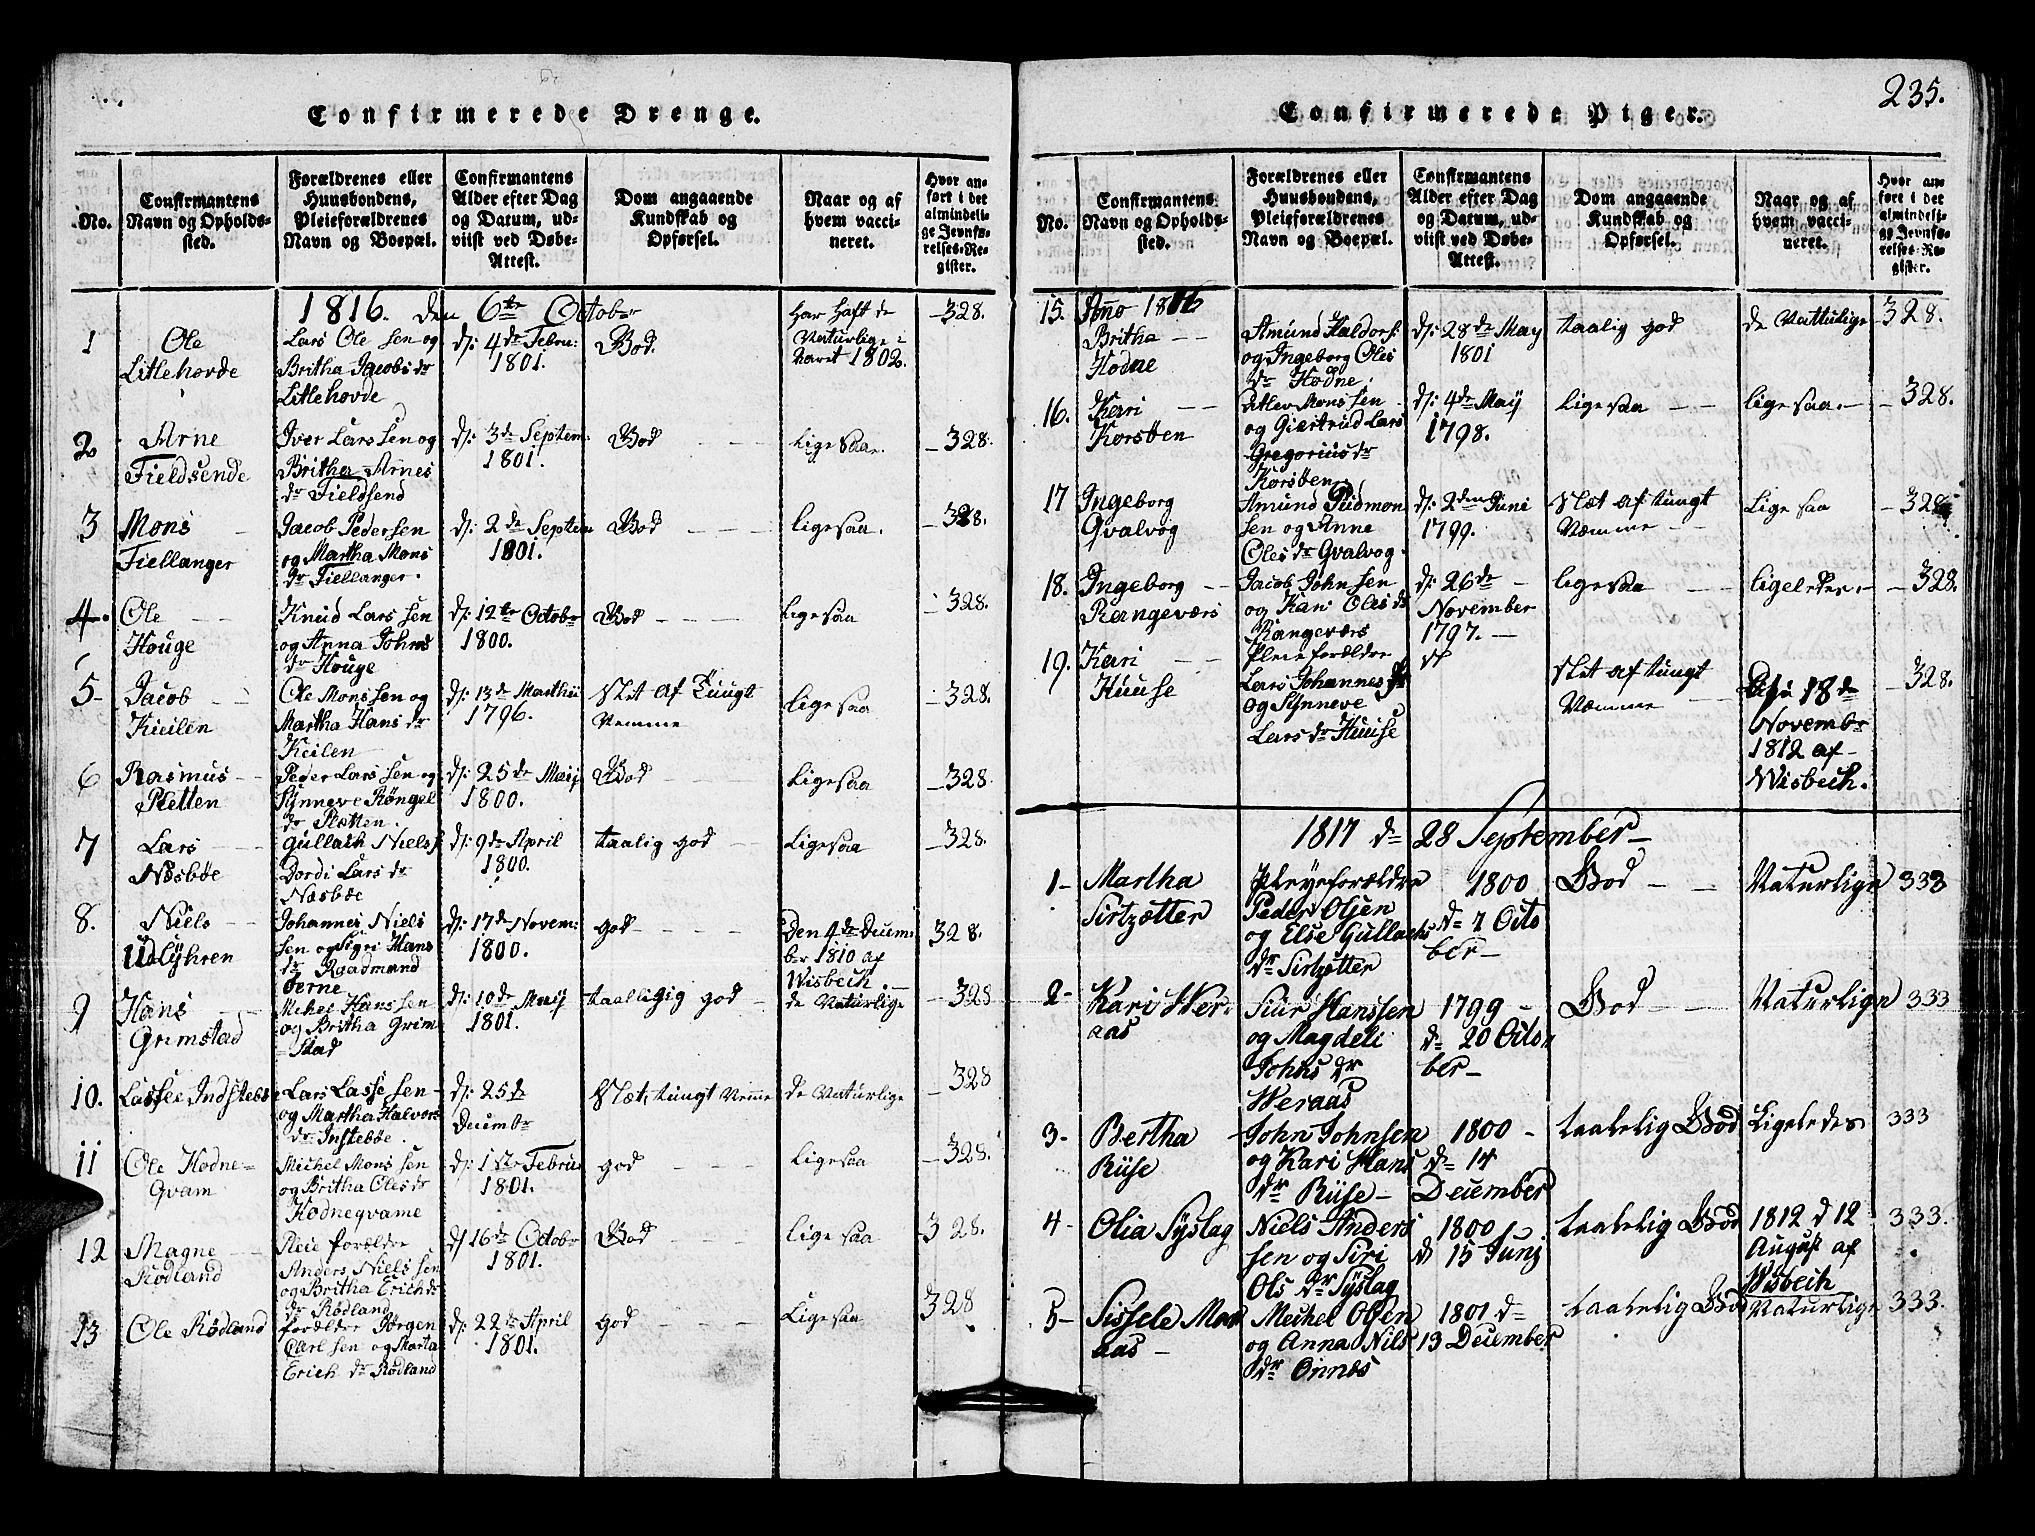 235.
Confirmerede Drenge.
No.
Confirmantens
Navn og Opholds-
sted.
Forældrenes eller
Huusbondens,
Pleieforældrenes
Navn og Boepæl.
Confirmantens
Alder efter Dag
og Datum, ud-
viist ved Døbe-
Attest.
Dom angaaende
Kundskab og
Opførsel.
Naar og af
hvem vacci-
neret.
Hvor an-
ført i det
almindeli-
ge Jevnfø-
relses-Re-
gister.
1816. den 6te Octobr
1
Ole
Litlehovde
Lars Ole sen og
Britha Jacobs dr
Litlehovde
d: 4de Febru:
1801.
God.
Har Haft de
Naturlige i
Aaret 1802.
328.
2
Arne
Fieldsende
Iver Lars sen og
Britha Arnes
dr Fieldsend
d: 3de Septem:
1801.
God
Ligesaa.
328.
3
Mons
Fiellanger
Jacob Pedersen
og Martha Mons
dr Fiellanger.
d: 2de Septem
1801.
God
ligesaa.
328.
4.
Ole
Houge
Knud Lars sen
og Anna Johns
dr Houge
d: 12te Octobr
1800.
God
ligesaa
328.
5
Jacob
Kieilen
Ole Mons sen og
Martha Hans dr
Keilen
d: 13de Marthii
1796.
Slet af Tungt
Nemme
ligesaa
328.
6
Rasmus
Pletten
Peder Lars sen og
Synneve Røngel
dr Pletten.
d: 25de Maij
1800.
God
Ligesaa
328.
7
Lars
Næsbøe
Gullach Niels s
Dordi Lars dr
Næsbøe
d: 9de April
1800.
taalig god
Ligesaa
328.
8.
Niels
Udlyhren
Johannes Niels
sen og Sigri Hans
dr Raadmand
d: 17de Novem:
1800.
god
Den 4de Decem:
ber 1810 af
Wisbech.
328.
9
Hans
Grimstad
Mikel Hans sen
og Britha Grim
Stad
d: 10de Maij
1801.
taalligig god
de Naturlige
328
10.
Lasse Indstebø
Lars Lasse sen
og Martha Halvors
dr Instebøe.
d: 25de
Decembr
Slæt, tungt Nemme
de Naturlige
328
11
Ole Hodne=
Qvam
Michel Mons sen
og Britha Oles dr
Hodneqvame
d: 1ste Febru
1801.
god
ligesaa
328.
12
Magne
Rødland
Pleie forældre
Anders Niels sen
og Britha Erich ds
dr Rødland
d 16de Octobr
1801.
God
lige saa
328.
13
Ole Rødland
forælder Jørgen
Carl sen og Marta
Erich dr Rødland
d: 22de April
1801.
god
Ligesaa
328
Confirmerede Piger.
No.
Confirmantens
Navn og Opholds-
sted.
Forældrenes eller
Huusbondens,
Pleieforældrenes
Navn og Boepæl.
Confirmantens
Alder efter Dag
og Datum, ud-
viist ved Døbe-
Attest.
Dom angaaende
Kundskab og
Opførsel.
Naar og af
hvem vacci-
neret.
Hvor an-
ført i det
almindeli-
ge Jevnfø-
relses-Re-
gister.
15.
Ano 1816
Britha
Hodne
Amund Haldors.
og Ingeborg Oles
dr Hodne.
d: 28de May
1801
taalig god
de Nattulige
328.
16.
Kari
Korsøen
Ditlev Mons sen
og Giertrud Lars
Gregorius dr
Korsøen
d: 4de Maij
1798.
Ligesaa
ligesaa.
328.
17
Ingeborg
Qvalvog
Amund Gudmon
sen og Anne
Oles dr Qvalvog.
d: 2den Juni
1799.
Slæt af tungt
Næmme
Lige saa
328
18.
Ingeborg
Rangeværs
Jacob John sen
og Kari Oles dr
Rangeværs
d: 26de
November
1797.
ligesaa
ligeledes.
328.
19.
Kari
Huuse
Pleie forældre
Lars Johannes
og Synneve
Lars dr Huuse
Slet af tungt
Næmme
18de
Novembr
1812 af
Wisbech.
328.
1817 d 28 September
1
Martha
Sirtzøtter
Pleyeforældre
Peder Olsen
og Else Gullachs
dr Sirtzøtter
1800
d 7 Octo
ber
God
Naturlign
333
2
Kari Wer
aas
Siur Hanssen
og Magdeli
Johns dr
Weraas
1799
d 20 Octo
ber
God
Naturlign
333
3
Bertha
Riise
John Johnsen
og Kari Hans
dr Riise
1800
d 14
December
taalelig God
Ligeledes
333
4
Olia Syslag
Niels Anders
sen og Siri
Ols dr Syslag
1800
d 15 Junj
taalelig God
1812 d 12
August af
Wisbech
333.
5
Sissele Mor
aas
Michel Olsen
og Anna Nils
dr Onnes
1801 d
13 December
taalelig God
Naturlign
333.